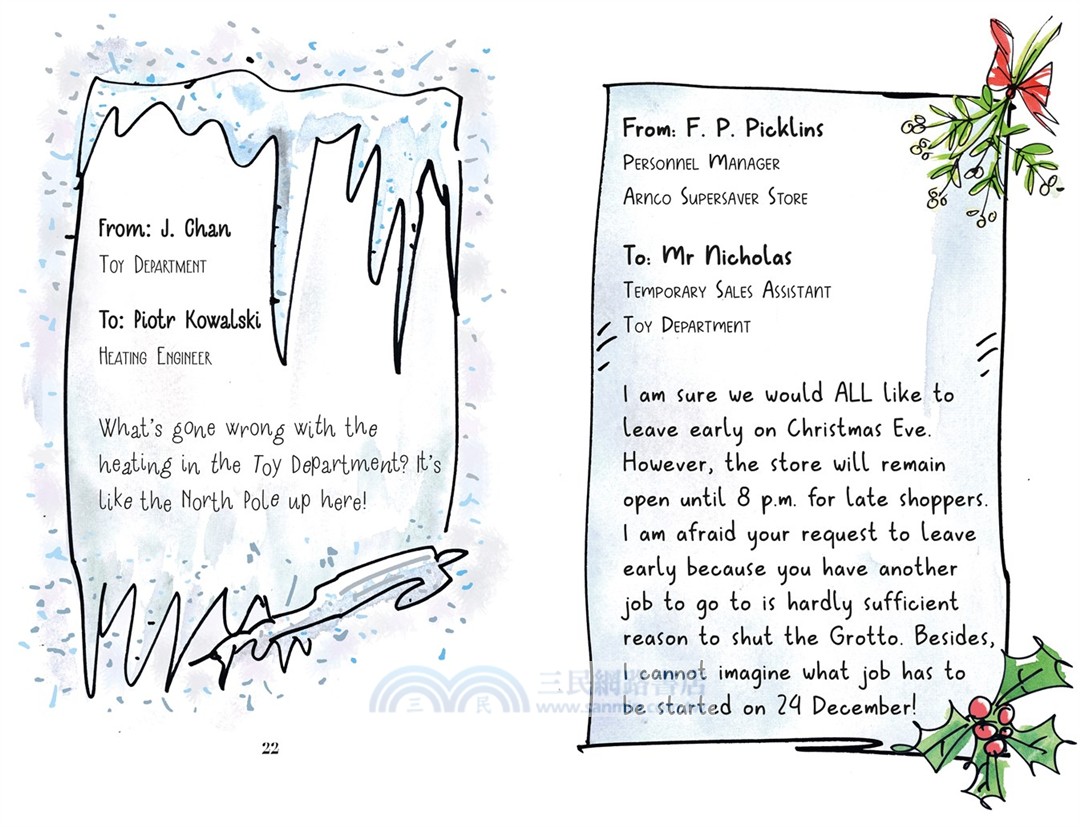 From: J. Chan
Toy Department
To: Piotr Kowalski
Heating Engineer
What's gone wrong with the
heating in the Toy Department? It's
like the North Pole up here!
22
From: F. P. Picklins
Personnel Manager
Arnco Supersaver Store
To: Mr Nicholas
Temporary Sales Assistant
Toy Department
I am sure we would ALL like to
leave early on Christmas Eve.
However, the store will remain
open until 8 p.m. for late shoppers.
I am afraid your request to leave
early because you have another
job to go to is hardly sufficient
reason to shut the Grotto. Besides,
I cannot imagine what job has to
be started on 24 December!
三民網路書店
三 民